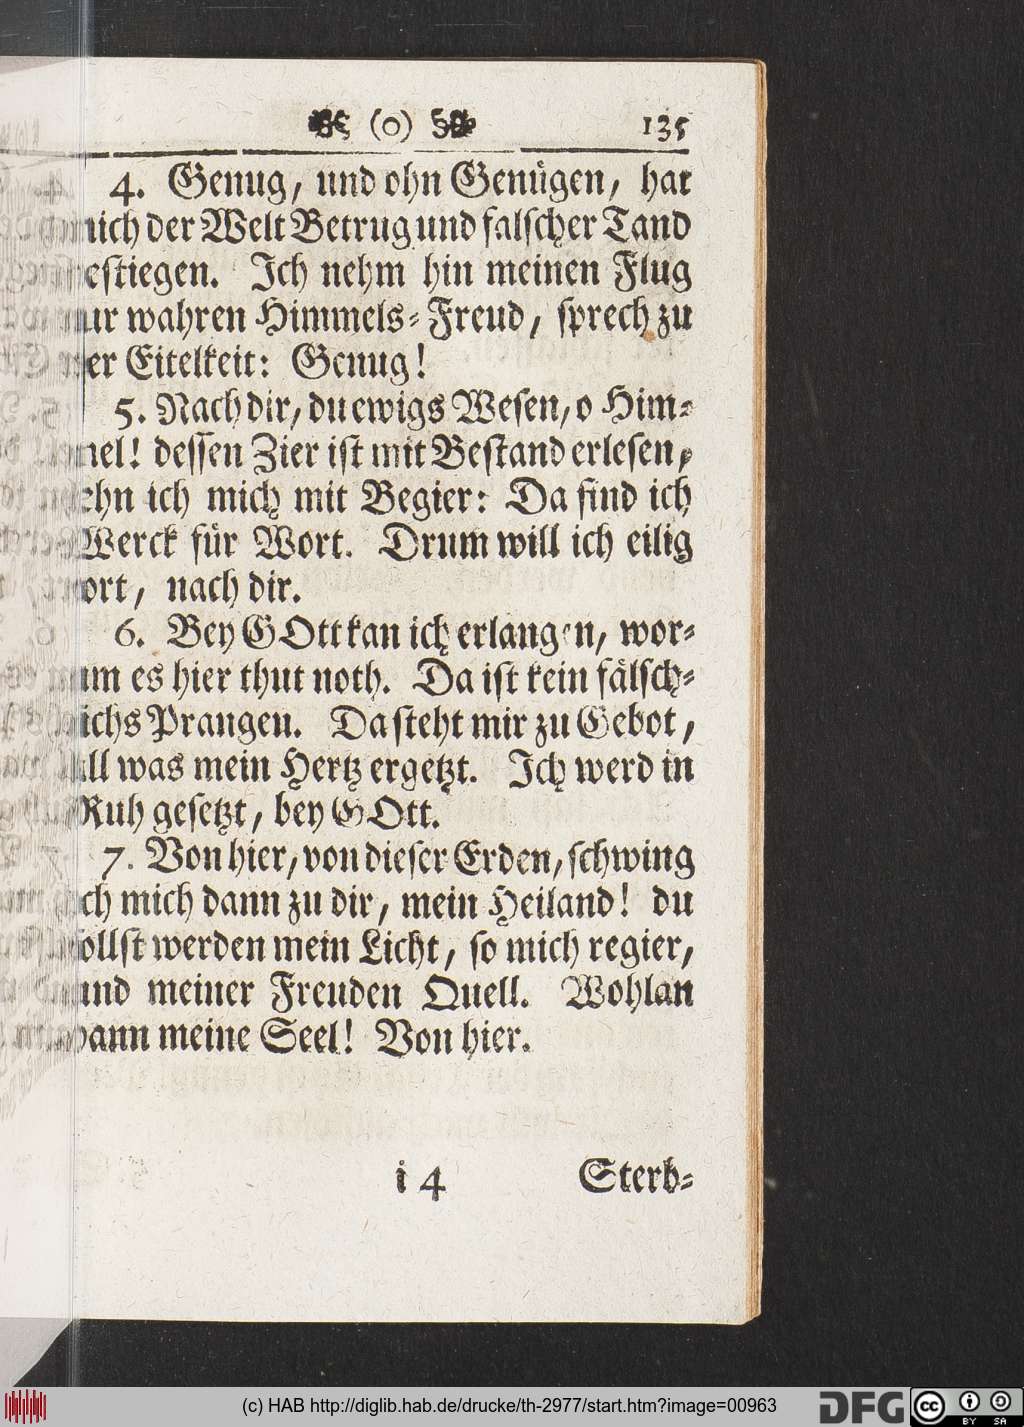 (o) 135
4. Genug, und ohn Genügen, hat
mich der Welt Betrug und falscher Tand
estiegen. Ich nehm hin meinen Flug
zur wahren Himmels-Freud, sprech zu
der Eitelkeit: Genug!
5. Nach dir, du ewigs Wesen, o Him-
mel! dessen Zier ist mit Bestand erlesen,
sehn ich mich mit Begier: Da find ich
Werck für Wort. Drum will ich eilig
fort, nach dir.
6. Bey GOtt kan ich erlangen, wor-
um es hier thut noth. Da ist kein fälsch-
lichs Prangen. Da steht mir zu Gebot,
all was mein Hertz ergetzt. Ich werd in
Ruh gesetzt, bey GOtt.
7. Von hier, von dieser Erden, schwing
ich mich dann zu dir, mein Heiland! du
sollst werden mein Licht, so mich regier,
und meiner Freuden Quell. Wohlan
dann meine Seel! Von hier.
i 4 Sterb-
(c) HAB http://diglib.hab.de/drucke/th-2977/start.htm?image=00963
DFG
cc BY SA